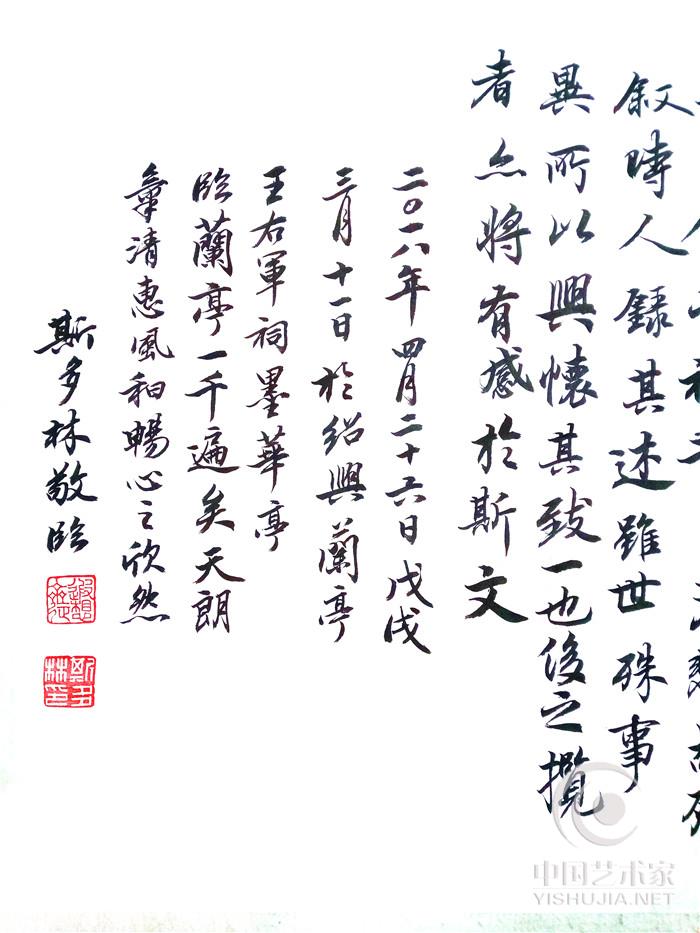 叙時人錄其述雖世殊事
異所以興懷其致一也後之攬
者亦將有感於斯文
二〇一八年四月二十六日戊戌
三月十一日於紹興蘭亭
王右軍祠墨華亭
臨蘭亭一千遍矣天朗
氣清惠風和暢心之欣然
斯多林敬臨
斯多林印
中国艺术家
YISHUJIA.NET